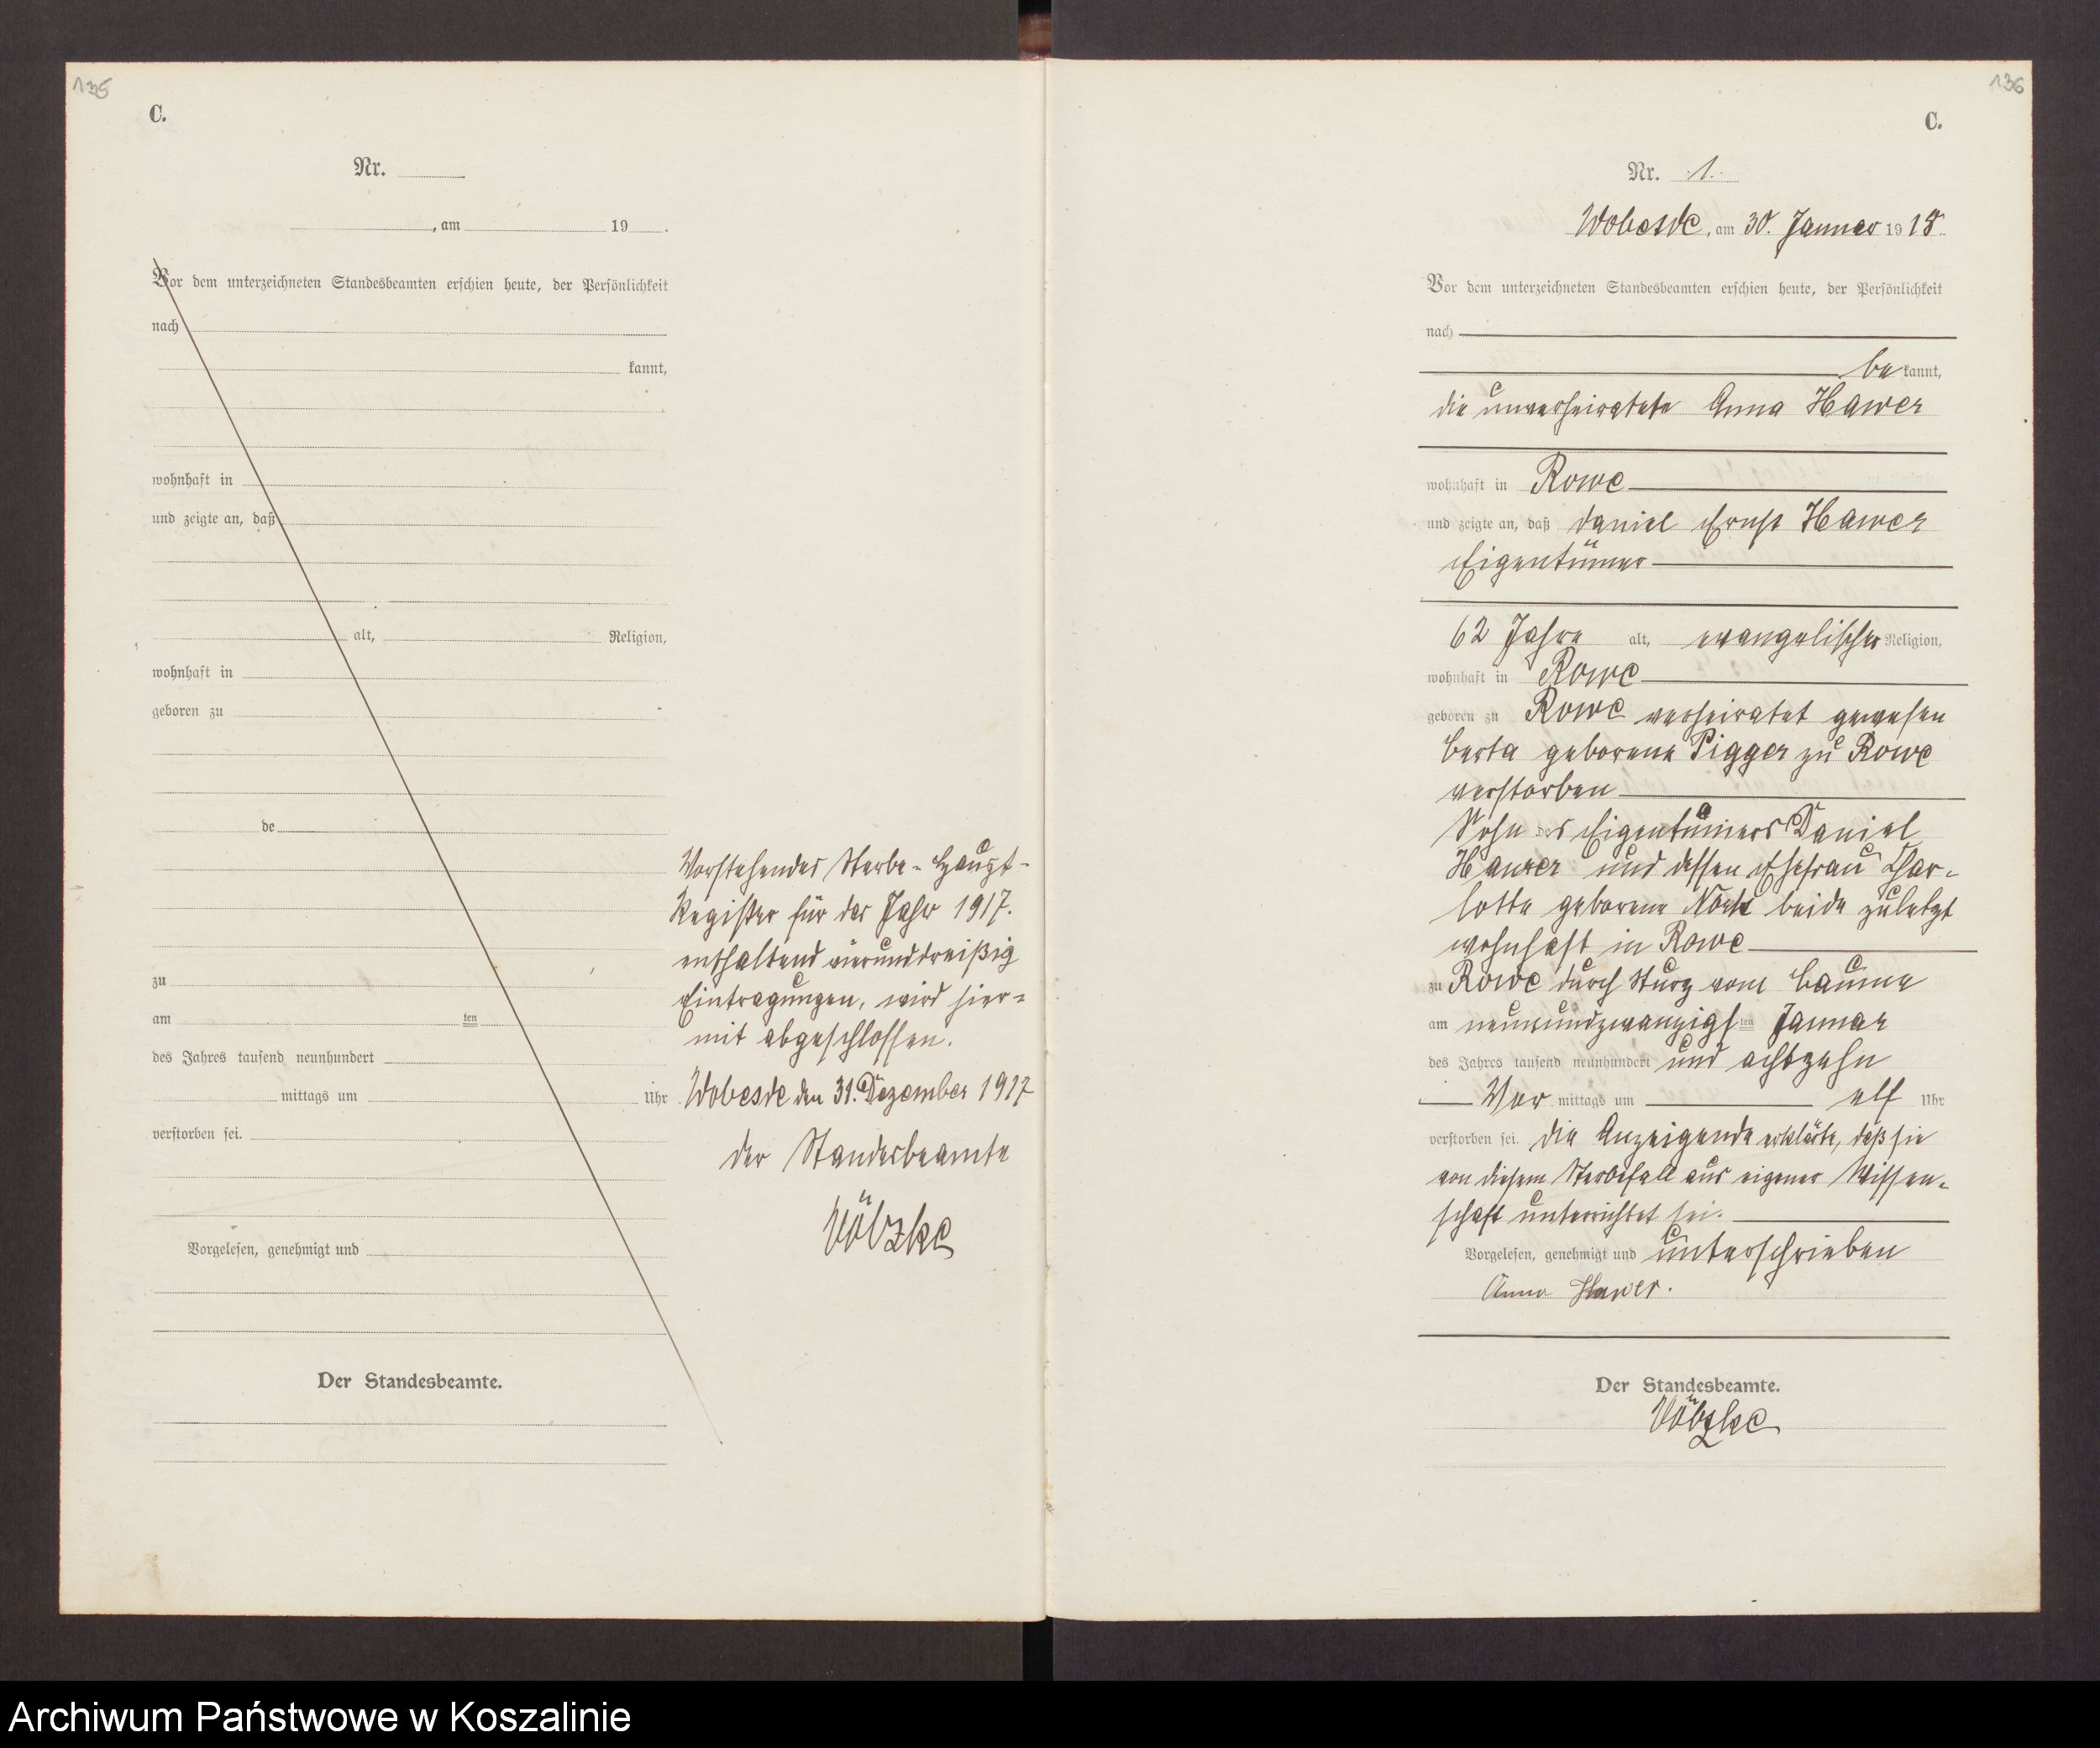 135
C.
Nr.
, am 19 .
Vor dem unterzeichneten Standesbeamten erschien heute, der Persönlichkeit
nach
kannt,
wohnhaft in
und zeigte an, daß
alt, Religion,
wohnhaft in
geboren zu
de
zu
am ten
des Jahres tausend neunhundert
mittags um Uhr
verstorben sei.
Vorgelesen, genehmigt und
Der Standesbeamte.
Vorstehendes Sterbe-Haupt-
Register für das Jahr 1917.
enthaltend vierunddreißig
Eintragungen, wird hier-
mit abgeschlossen.
Wobesde den 31. Dezember 1917
Der Standesbeamte
Völzke
136
C.
Nr. 1.
Wobesde, am 30. Januar 1918.
Vor dem unterzeichneten Standesbeamten erschien heute, der Persönlichkeit
nach
be kannt,
die unverheiratete Anna Hawer
wohnhaft in Rowe
und zeigte an, daß Daniel Ernst Hawer
Eigentümer
62 Jahre alt, evangelischer Religion,
wohnhaft in Rowe
geboren zu Rowe verheiratet gewesen
Berta geborene Pigger zu Rowe
verstorben
Sohn des Eigentümers Daniel
Hawer und dessen Ehefrau Char-
lotte geborene beide zuletzt
wohnhaft in Rowe
zu Rowe durch Sturz vom Baume
am neunundzwanzigsten Januar
des Jahres tausend neunhundert und achtzehn
Vor mittags um elf Uhr
verstorben sei. Die Anzeigende erklärte, daß sie
von diesem Sterbefall aus eigener Wissen-
schaft unterrichtet sei.
Vorgelesen, genehmigt und unterschrieben
Anna Hawer.
Der Standesbeamte.
Völzke
Archiwum Państwowe w Koszalinie